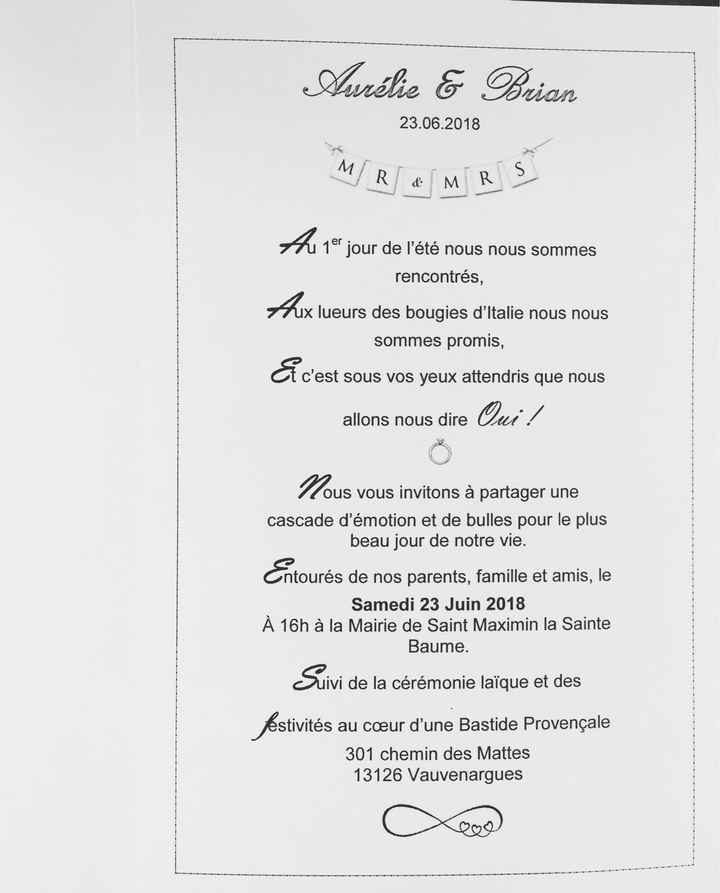 Aurélie & Brian
23.06.2018
MR & MRS
Au 1er jour de l'été nous nous sommes
rencontrés,
Aux lueurs des bougies d'Italie nous nous
sommes promis,
Et c'est sous vos yeux attendris que nous
allons nous dire Oui !
Nous vous invitons à partager une
cascade d'émotion et de bulles pour le plus
beau jour de notre vie.
Entourés de nos parents, famille et amis, le
Samedi 23 Juin 2018
À 16h à la Mairie de Saint Maximin la Sainte
Baume.
Suivi de la cérémonie laïque et des
festivités au cœur d'une Bastide Provençale
301 chemin des Mattes
13126 Vauvenargues